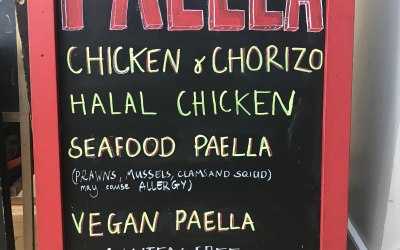 PAELLA
CHICKEN & CHORIZO
HALAL CHICKEN
SEAFOOD PAELLA
(PRAWNS, MUSSELS, CLAMS AND SQUID)
may cause ALLERGY)
VEGAN PAELLA
GLUTEN FREE